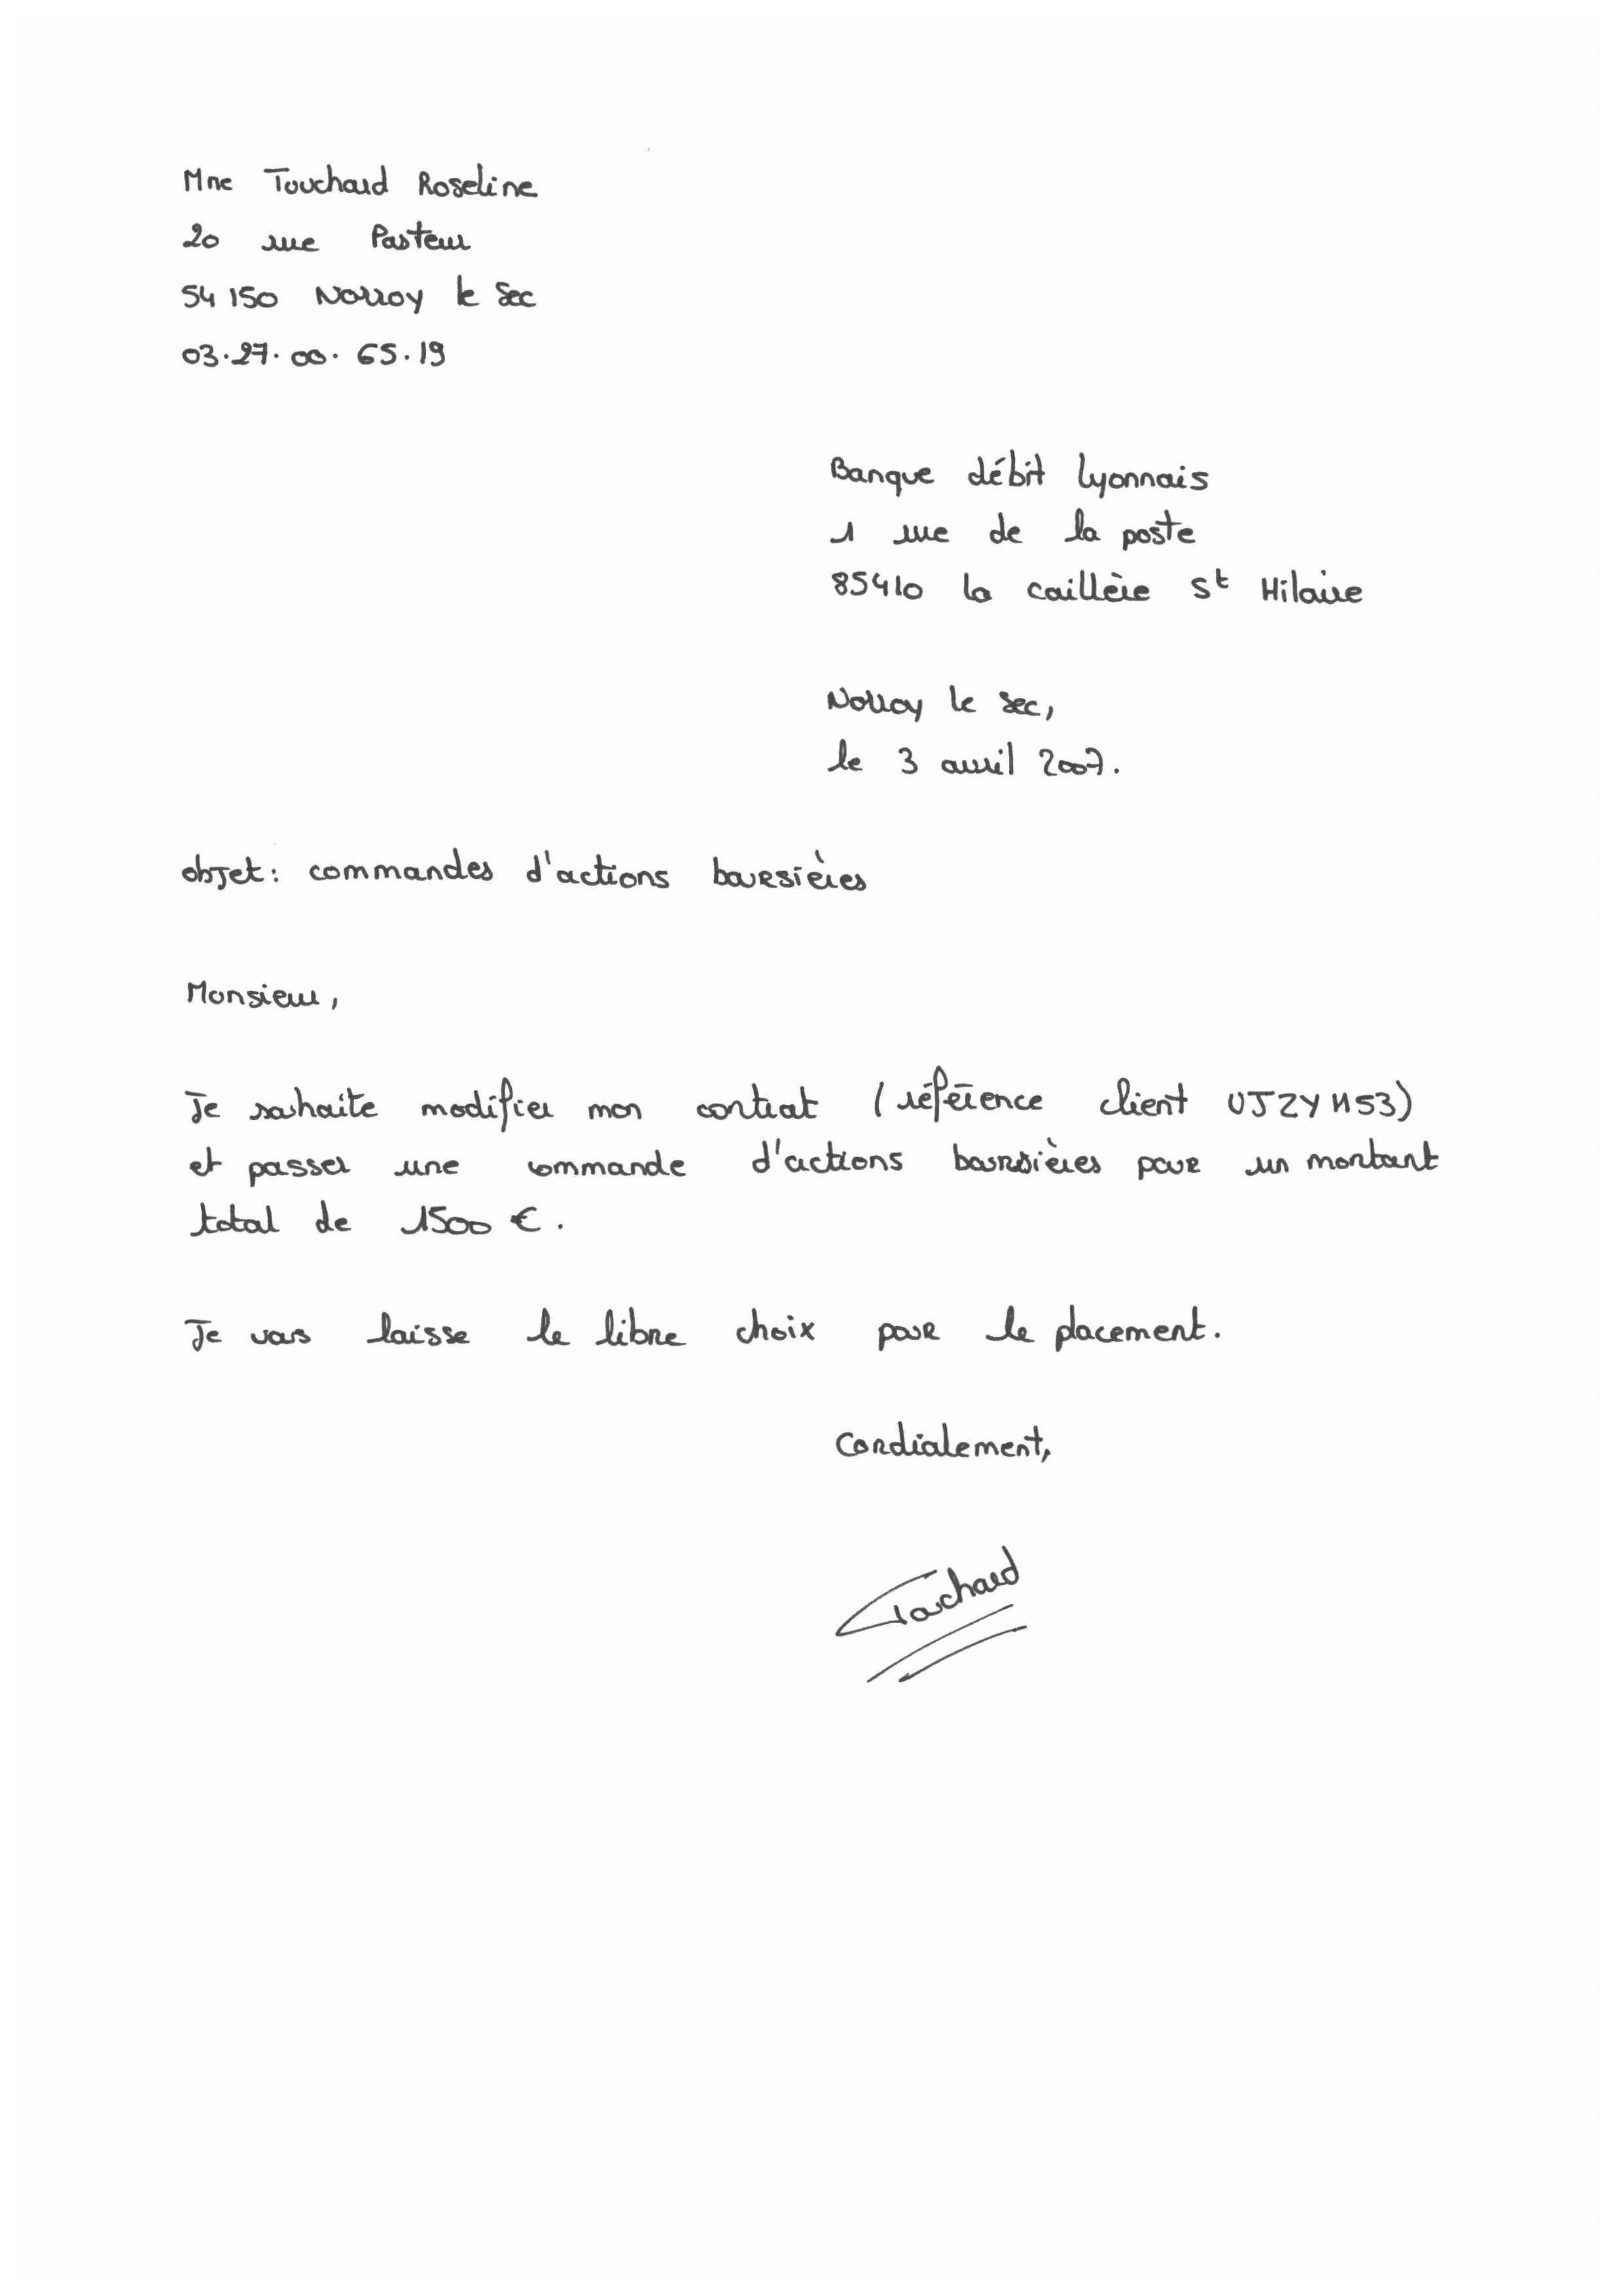 Mme Touchard Roseline
20 rue Pasteur
54150 Norroy le Sec
03.27.00.65.19
Banque débit lyonnais
1 rue de la poste
85410 la caillère St Hilaire
Norroy le Sec,
le 3 avril 2007.
objet: commandes d'actions boursières
Monsieur,
Je souhaite modifier mon contrat (référence client
et passer une commande d'actions boursières pour un montant
total de 1500 €.
Je vous laisse le libre choix pour le placement.
Cordialement,
Touchard